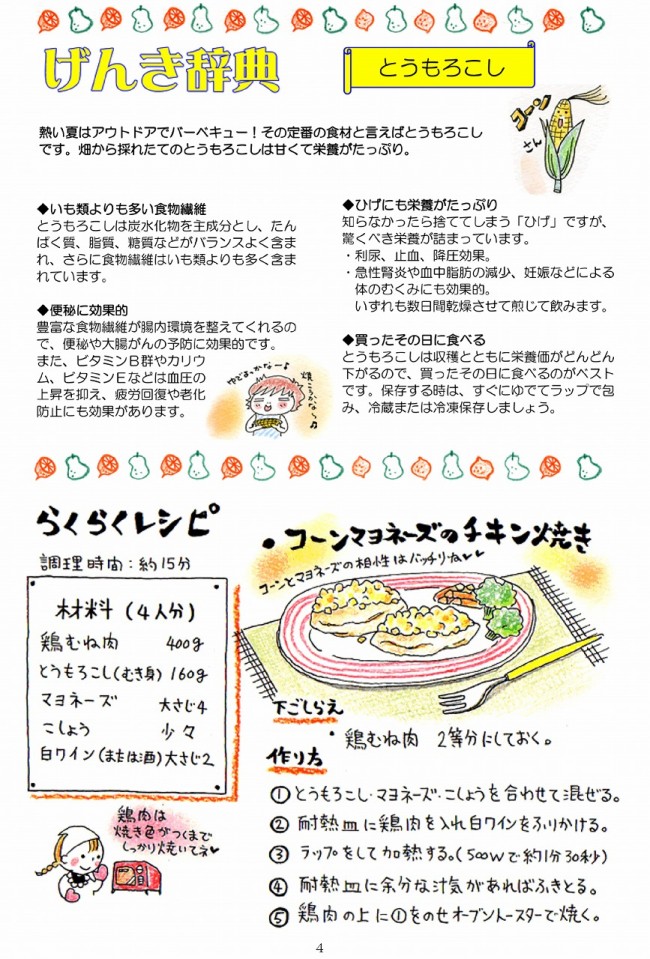 げんき辞典
とうもろこし
コーン
さん
熱い夏はアウトドアでバーベキュー！その定番の食材と言えばとうもろこし
です。畑から採れたてのとうもろこしは甘くて栄養がたっぷり。
◆いも類よりも多い食物繊維
とうもろこしは炭水化物を主成分とし、たん
ぱく質、脂質、糖質などがバランスよく含ま
れ、さらに食物繊維はいも類よりも多く含ま
れています。
◆便秘に効果的
豊富な食物繊維が腸内環境を整えてくれるの
で、便秘や大腸がんの予防に効果的です。
また、ビタミンＢ群やカリウ
ム、ビタミンＥなどは血圧の
上昇を抑え、疲労回復や老化
防止にも効果があります。
ゆでよっかな〜♪
焼こうかな〜♫
◆ひげにも栄養がたっぷり
知らなかったら捨ててしまう「ひげ」ですが、
驚くべき栄養が詰まっています。
・利尿、止血、降圧効果。
・急性腎炎や血中脂肪の減少、妊娠などによる
体のむくみにも効果的。
いずれも数日間乾燥させて煎じて飲みます。
◆買ったその日に食べる
とうもろこしは収穫とともに栄養価がどんどん
下がるので、買ったその日に食べるのがベスト
です。保存する時は、すぐにゆでてラップで包
み、冷蔵または冷凍保存しましょう。
らくらくレシピ
調理時間：約15分
材料（4人分）
鶏むね肉 400g
とうもろこし(むき身) 160g
マヨネーズ 大さじ4
こしょう 少々
白ワイン(または酒)大さじ2
鶏肉は
焼き色がつくまで
しっかり焼いてネ♥
・コーンマヨネーズのチキン焼き
コーンとマヨネーズの相性はバッチリね♥♥
下ごしらえ
・鶏むね肉 2等分にしておく。
作り方
①とうもろこし・マヨネーズ・こしょうを合わせて混ぜる。
②耐熱皿に鶏肉を入れ白ワインをふりかける。
③ラップをして加熱する。(500wで約1分30秒)
④耐熱皿に余分な汁気があればふきとる。
⑤鶏肉の上に①をのせオーブントースターで焼く。
4